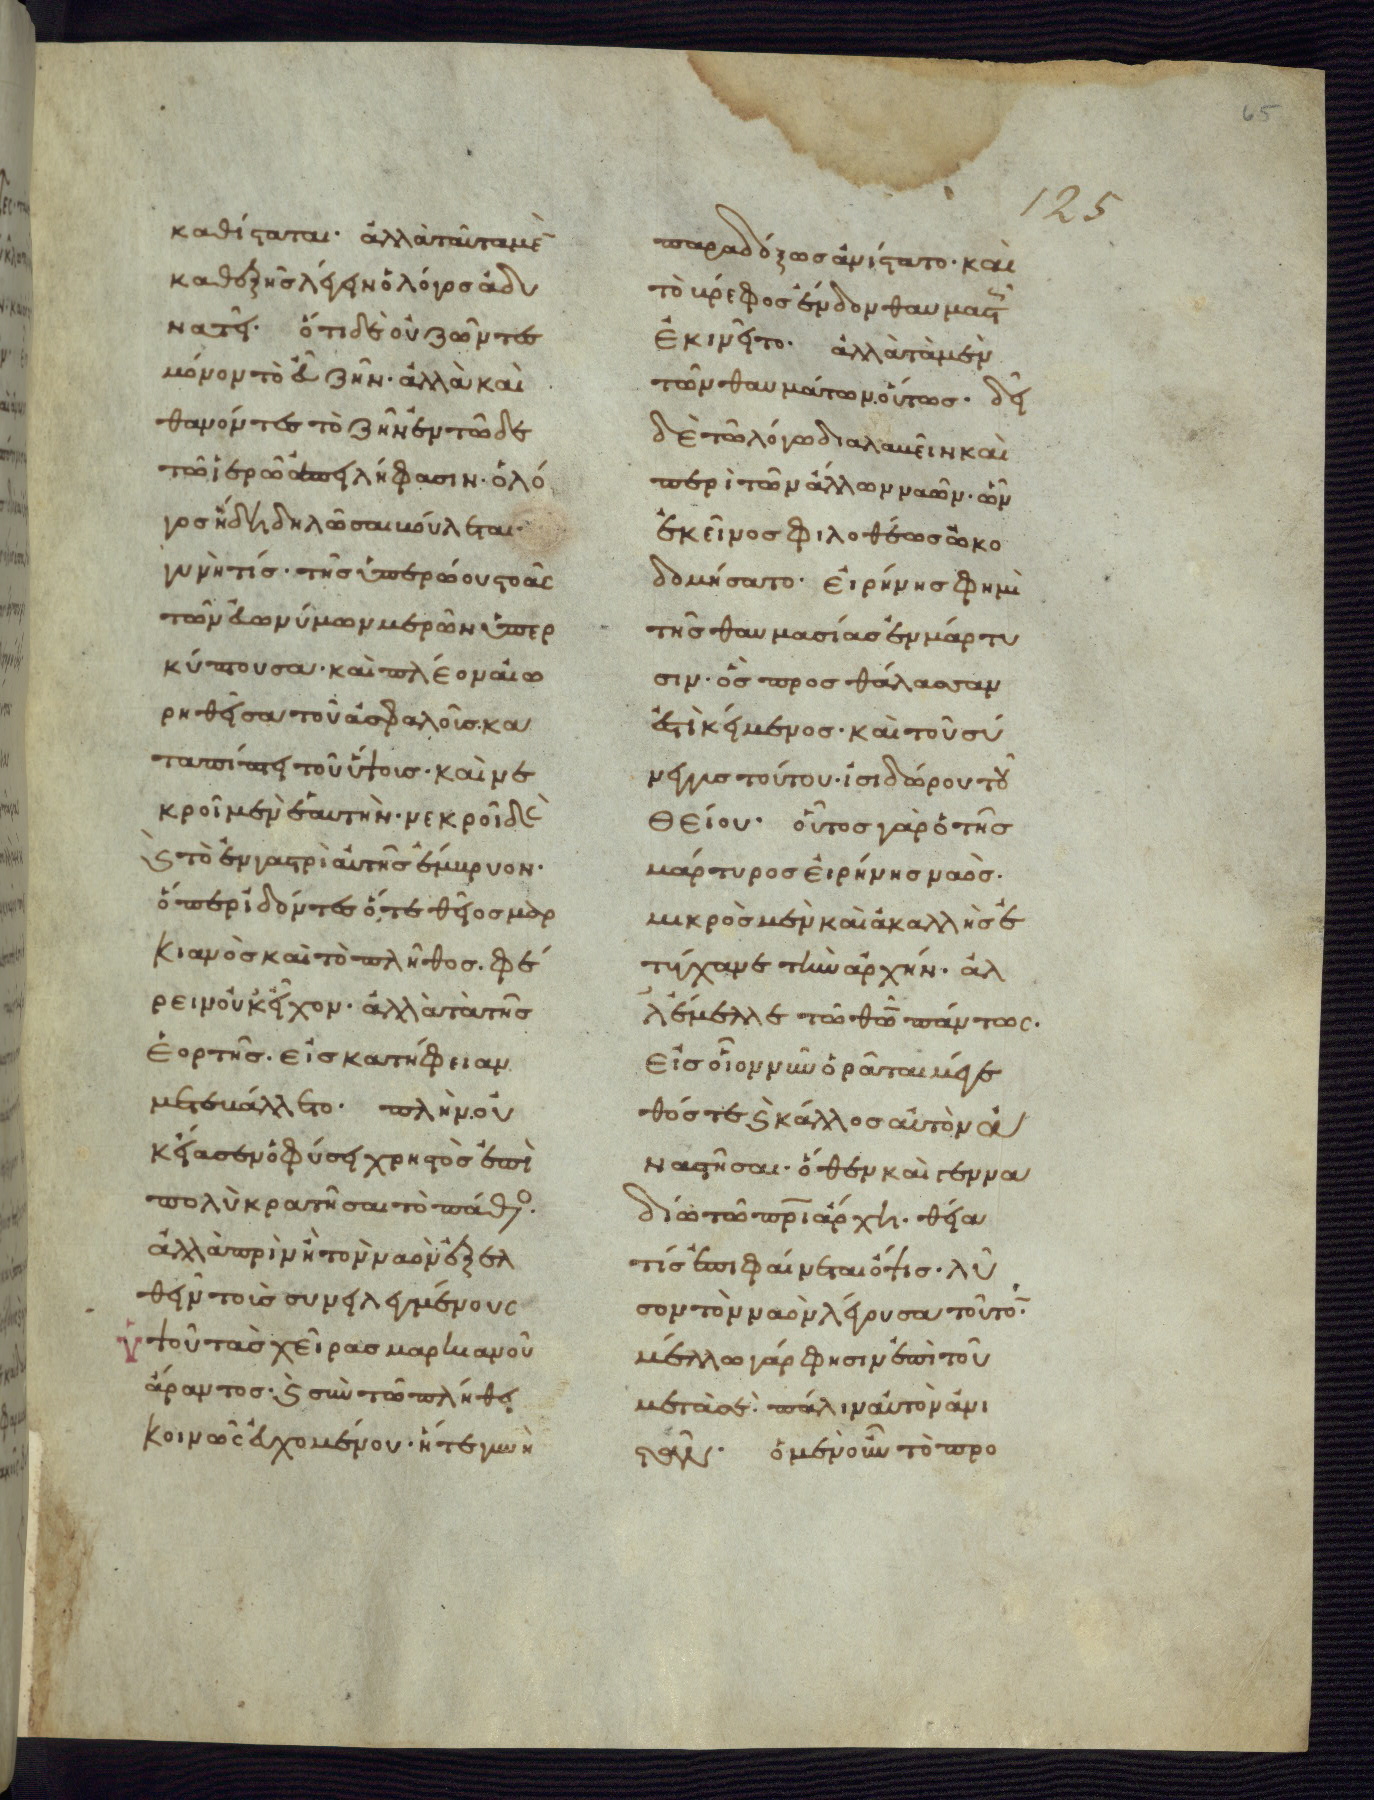 65
125
καθίσταται· ἀλλὰ ταῦτα μὲ
καθεξῆς λέγειν ὁ λόγος ἀδυ
νατεῖ· ὅτι δὲ οὐ ζῶντες
μόνον τὸ εὖ ζῆν· ἀλλὰ καὶ
θανόντες τὸ ζῆν ἐν τῶδε
τῶ ἱερῶ ἀπειλήφασιν· ὁ λό
γος ἤδη δηλῶσαι βούλεται·
γυνή τις· τῆς ὑπερώου στοᾶς
τῶν εὐωνύμων μερῶν ὑπερ
κύπτουσα· καὶ πλέον αἰω
ρηθεῖσα τοῦ ἀσφαλοῦς· κα
ταπίπτει τοῦ ὕψους· καὶ νε
κροῖ μὲν ἑαυτὴν· νεκροῖ δὲ
καὶ τὸ ἐν γαστρὶ αὐτῆς ἔμβρυον·
ὅπερ ἰδόντες ὅ, τε θεῖος Μαρ
κιανὸς καὶ τὸ πλῆθος· φέ
ρειν οὐκ εἶχον· ἀλλὰ τὰ τῆς
ἑορτῆς· εἰς κατήφειαν
μετεβάλλετο· πλὴν οὐ
κ εἴασεν ὁ φύσει χρηστὸς ἐπὶ
πολὺ κρατῆσαι τὸ πάθος·
ἀλλὰ πρὶν ἢ τὸν ναὸν ἐξελ
θεῖν τοὺς συνειλεγμένους
τοῦ τὰς χεῖρας Μαρκιανοῦ
ἄραντος· καὶ σὺν τῶ πλήθει
κοινῶς εὐχομένου· ἥ τε γυνὴ
παραδόξως ἀνίστατο· καὶ
τὸ βρέφος ἔνδον θαυμαστῶς
ἐκινεῖτο· ἀλλὰ τὰ μὲν
τῶν θαυμάτων οὕτως· δεῖ
δὲ τῶ λόγω διαλαβεῖν καὶ
περὶ τῶν ἄλλων ναῶν· ὧν
ἐκεῖνος φιλοθέως ὠκο
δομήσατο· Εἰρήνης φημὶ
τῆς θαυμασίας ἐν μάρτυ
σιν· ὃς πρὸς θάλασσαν
ἐπικείμενος· καὶ τοῦ συ
νεγγυς τούτου· Ἰσιδώρου τοῦ
θείου· οὗτος γὰρ ὁ τῆς
μάρτυρος Εἰρήνης ναὸς·
μικρὸς μὲν καὶ ἀκαλλὴς ἐ
τύγχανε τὴν ἀρχήν· ἀλ
λ' ἔμελλε τῶ θῶ πάντως·
εἰς οἷον νῦν ὁρᾶται μέγε
θός τε καὶ κάλλος αὐτὸν ἀ
ναστῆσαι· ὅθεν καὶ Γεννα
δίω τῶ πριάρχη· θεία
τίς ἐπιφαίνεται ὄψις· λῦ
σον τὸν ναὸν λέγουσα τοῦτον·
μέλλω γάρ φησιν ἐπὶ τοῦ
μετὰ σὲ· πάλιν αὐτὸν ἀνι
στᾶν· ὁ μὲν οὖν τὸ προ